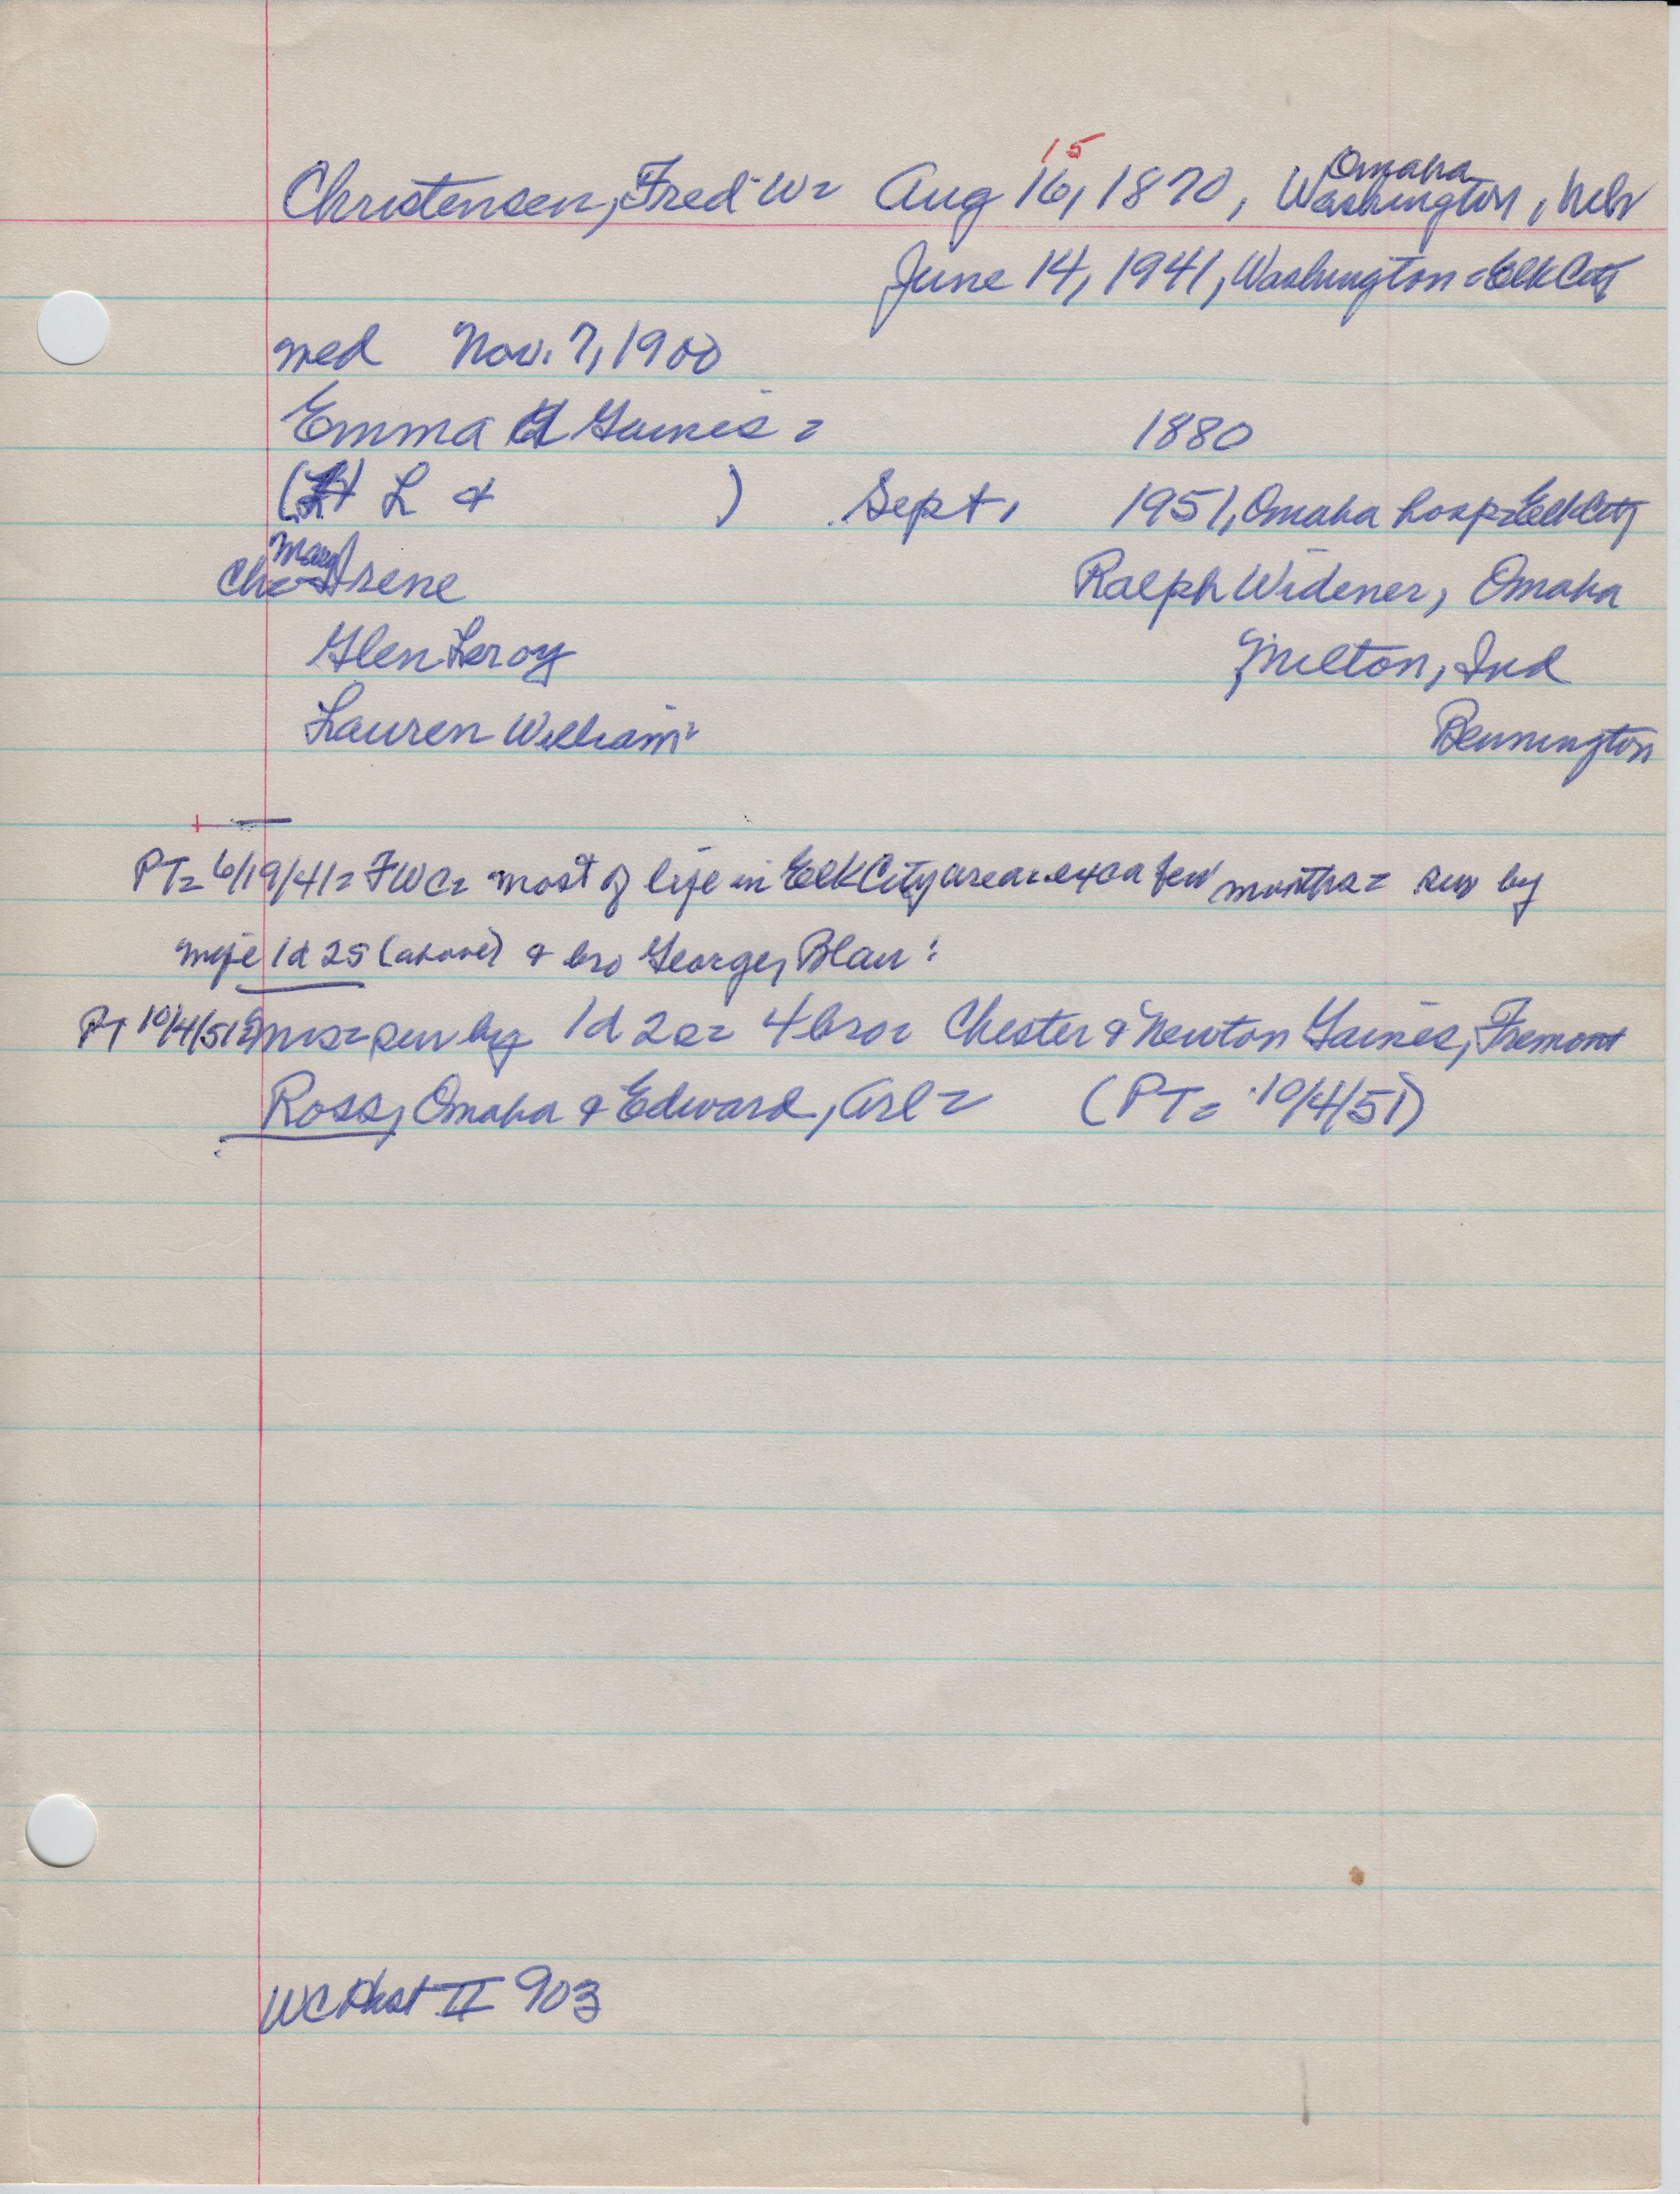 15
Omaha
Christensen, Fred W= Aug 16, 1870, Washington, Nebr
June 14, 1941, Washington = Elk City
med Nov. 7, 1900
Emma Gaines = 1880
( L & ) Sept, 1951, Omaha hosp = Elk City
Mary
Ch= Irene Ralph Widener, Omaha
Glen Leroy Milton, Ind
Lauren William= Bennington
PT= 6/19/41= FWC= most of life in Elk City area= exc a few months= sur by
wife 1d 2s (above) & bro George, Blair:
PT 10/4/51= Mrs= sur by 1d 2s= 4 bro= Chester & Newton Gaines, Fremont
Ross, Omaha & Edward, Arl= (PT= 10/4/51)
WC Hist II 903